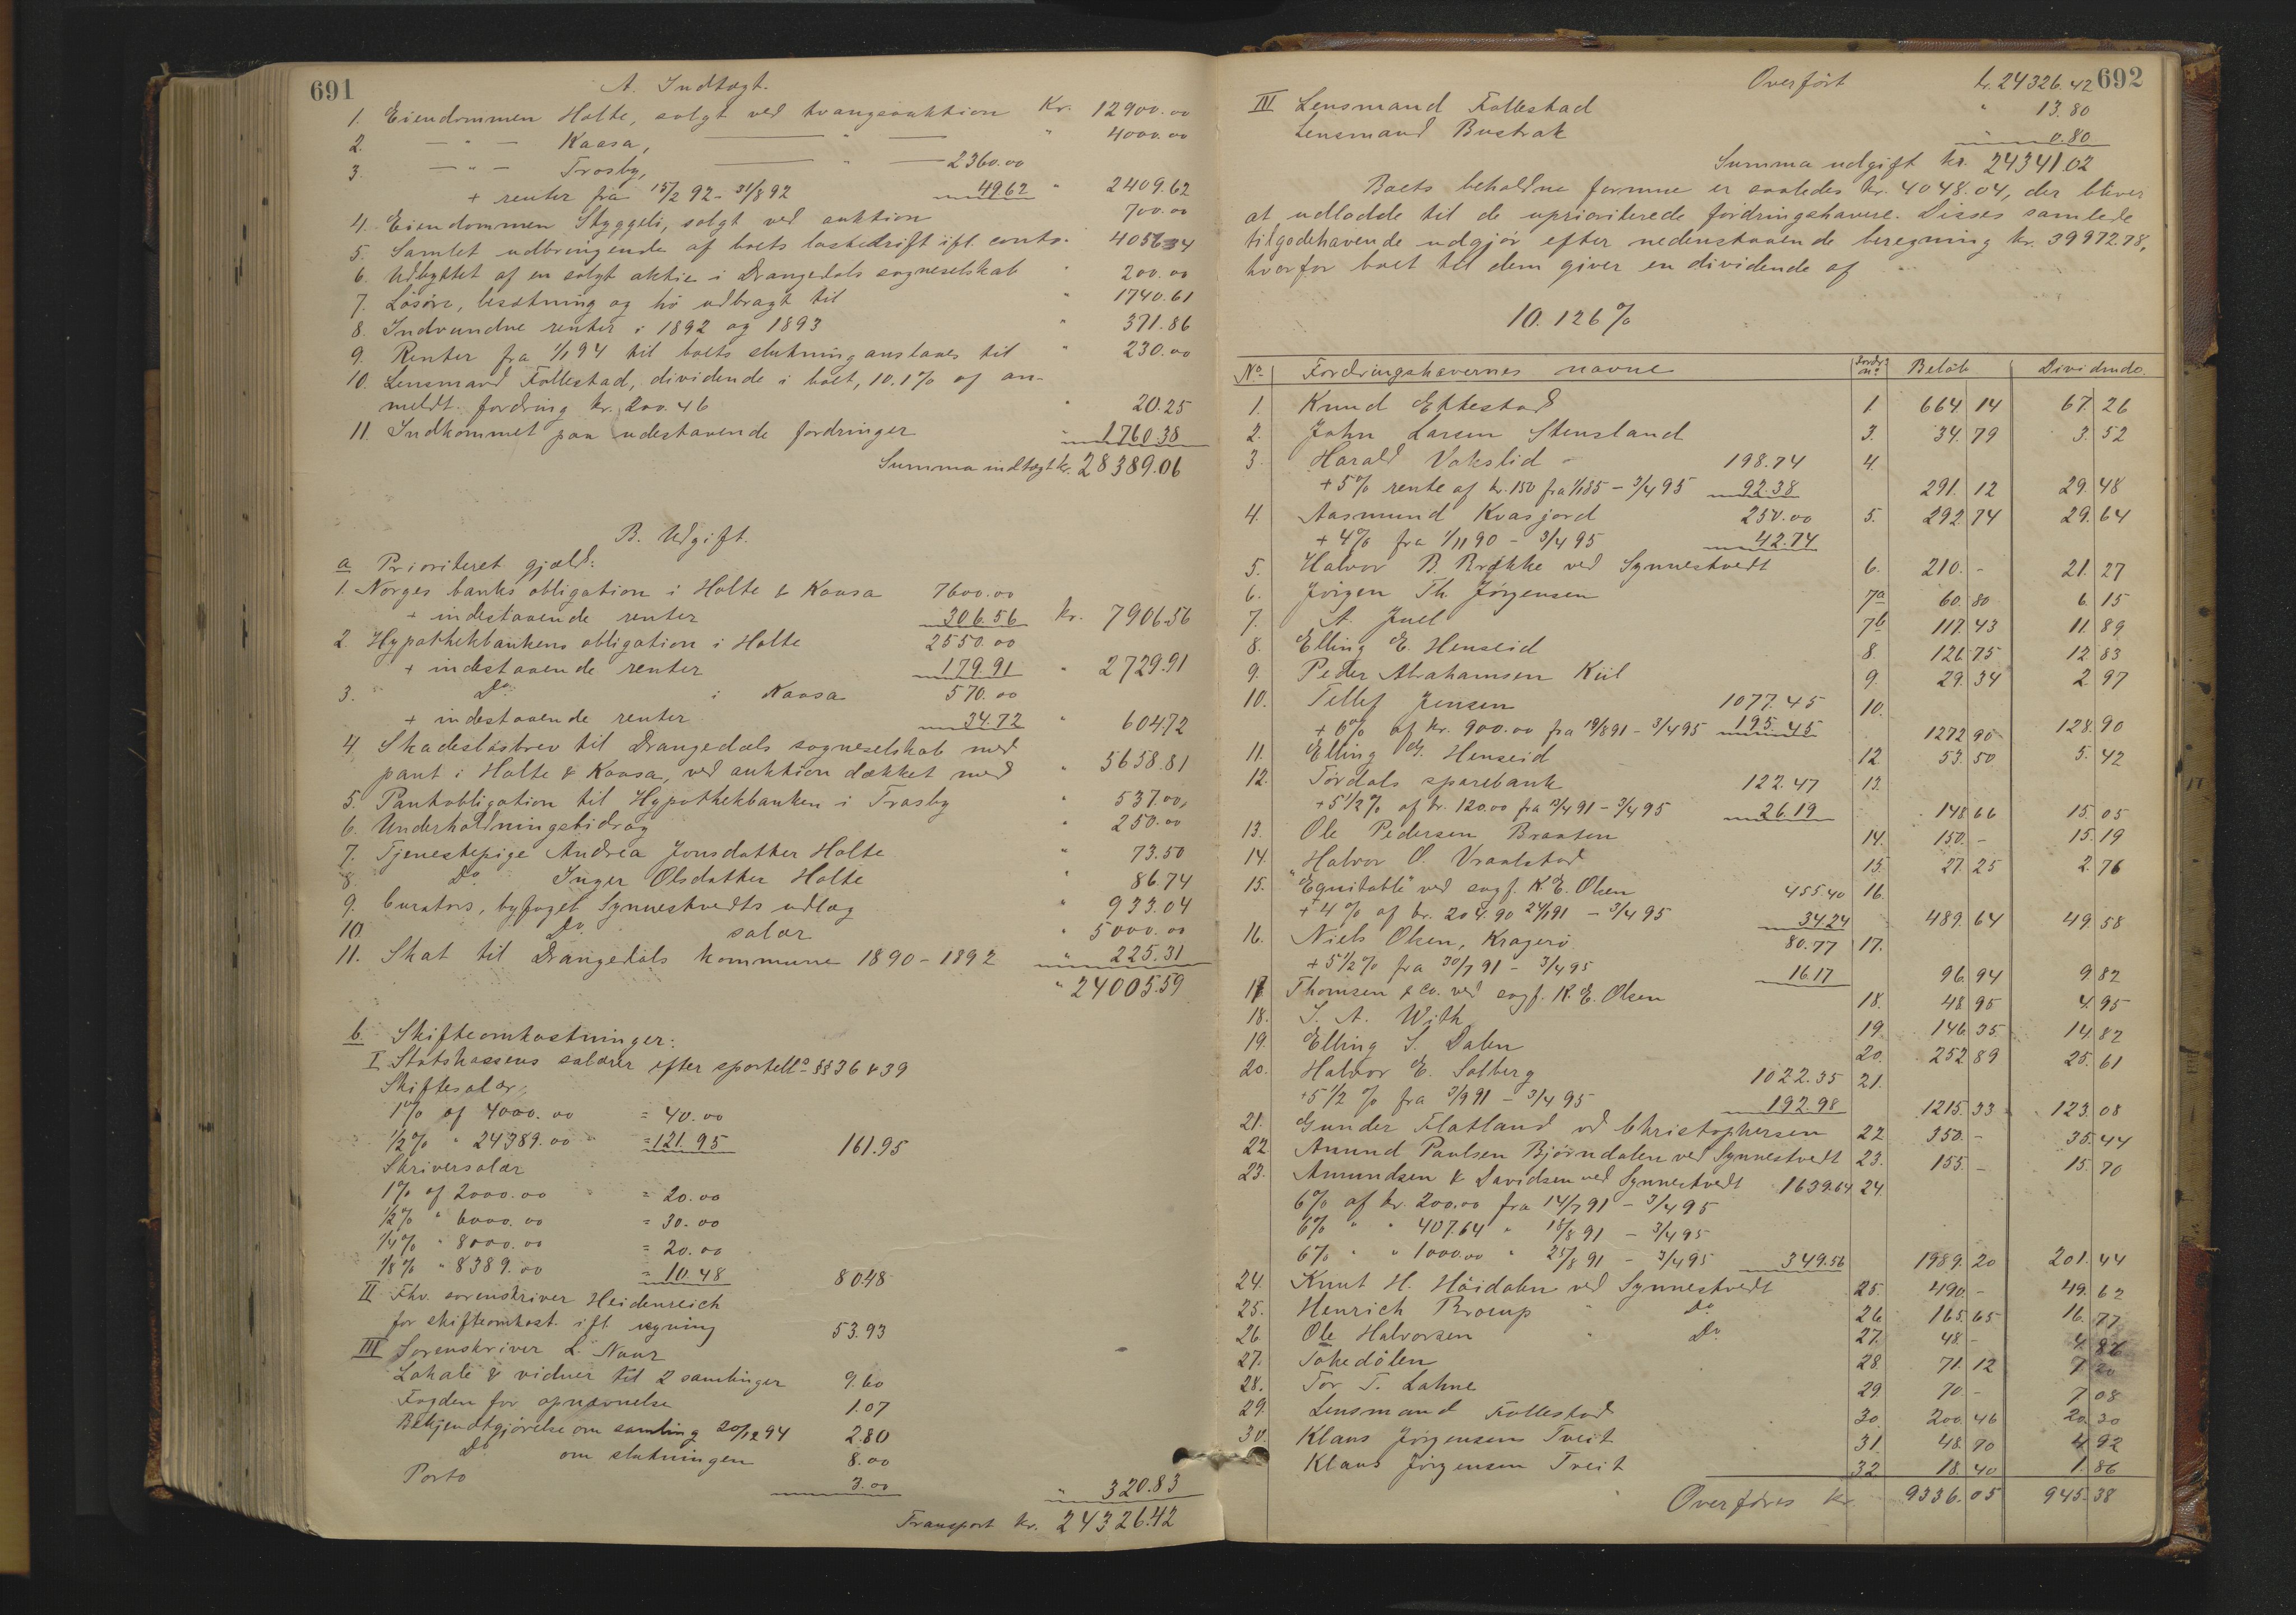 691
A. Indtægt.
1. Eiendommen Holte, solgt ved tvangsauktion Kr. 12900.00
2. — " — Kaasa, — " — " 4000.00
3. — " — Trosby, — " — 2360.00
+ renter fra 15/2 92 - 31/8 92 49.62 " 2409.62
4. Eiendommen Skyggeli, solgt ved auktion 700.00
5. Samlet udbringende af boets laskedrift ifl. conto. 4056.34
6. Udbyttet af en solgt aktie i Drangedals sogneselskab " 200.00
7. Løsøre, besætning og hø udbragt til " 1740.61
8. Indvundne renter i 1892 og 1893 " 371.86
9. Renter fra 1/1 94 til boets slutning anslaaes til " 230.00
10. Lensmand Follestad, dividende i boet, 10.1% af an-
meldt fordring kr. 200.46 " 20.25
11. Indkommet paa udestaaende fordringer " 1760.38
Summa indtægt kr. 28389.06
B. Udgift.
a Prioriteret gjæld:
1. Norges banks obligation i Holte & Kaasa 7600.00
+ indestaaende renter 306.56 kr. 7906.56
2. Hypothekbankens obligation i Holte 2550.00
+ indestaaende renter 179.91 " 2729.91
3. Do. i Kaasa 570.00
+ indestaaende renter 34.72 " 604.72
4. Skadesløsbrev til Drangedals sogneselskab med
pant i Holte & Kaasa, ved auktion dækket med " 5658.81
5. Pantobligation til Hypothekbanken i Trosby " 537.00
6. Underholdningsbidrag " 250.00
7. Tjenestepige Andrea Jonsdatter Holte " 73.50
8. Do. Inger Olsdatter Holte " 86.74
9. Curators, byfoget Synnestvedts udlæg " 933.04
10. Do. salær " 5000.00
11. Skat til Drangedals kommune 1890-1892 " 225.31
" 24005.59
b. Skifteomkostninger:
I Statskassens salærer efter sportello §§ 36 & 39
Skiftesalær,
1% af 4000.00 = 40.00
1/2% " 24389.00 = 121.95 161.95
Skriversalær
1% af 2000.00 = 20.00
1/2% " 6000.00 = 30.00
1/4% " 8000.00 = 20.00
1/8% " 8389.00 = 10.48 80.48
II Fhv. sorenskriver Heidenreich
for skifteomkost. ifl. regning 53.93
III Sorenskriver L. Naur
Lokale & vidner til 2 samlinger 9.60
Fogden for opnævnelse 1.07
Bekjendtgjørelse om samling 20/12 94 2.80
Do. om slutningen 8.00
Porto 3.00 " 320.83
Transport kr. 24326.42
692
Overført kr. 24326.42
III Lensmand Follestad " 13.80
Lensmand Bustrak " 0.80
Summa udgift kr. 24341.02
Boets beholdne formue er saaledes kr. 4048.04, der bliver
at udlodde til de uprioriterede fordringshavere. Disses samlede
tilgodehavende udgjør efter nedenstaaende beregning kr. 39972.78,
hvorfor boet til dem giver en dividende af
10.126%
No. Fordringshavernes navne Fordr. no. Beløb Dividende.
1. Knud Ettestad 1. 664.14 67.26
2. John Larsen Stensland 3. 34.79 3.52
3. Harald Vakslid 198.74 4.
+ 5% rente af kr. 150 fra 1/1 85 - 3/4 95 92.38 291.12 29.48
4. Aasmund Kvasjord 250.00 5. 292.74 29.64
+ 4% fra 1/11 90 - 3/4 95 42.74
5. Halvor B. Brække ved Synnestvedt 6. 210.- 21.27
6. Jørgen Th. Jørgensen 7a 60.80 6.15
7. A. Juel 7b 117.43 11.89
8. Elling E. Henseid 8. 126.75 12.83
9. Peder Abrahamsen Kiil 9. 29.34 2.97
10. Tellef Jensen 1077.45 10.
+ 6% af kr. 900.00 fra 19/8 91 - 3/4 95 195.45 1272.90 128.90
11. Elling G. Henseid 12 53.50 5.42
12. Tørdals sparebank 122.47 13.
+ 5 1/2% af kr. 120.00 fra 13/4 91 - 3/4 95 26.19 148.66 15.05
13. Ole Pedersen Braaten 14. 150.- 15.19
14. Halvor O. Vraalstad 15. 27.25 2.76
15. "Equitable" ved sagf. K. E. Olsen 455.40 16.
+ 4% af kr. 204.90 24/1 91 - 3/4 95 34.24 489.64 49.58
16. Niels Olsen, Kragerø 80.77 17.
+ 5 1/2% fra 30/7 91 - 3/4 95 16.17 96.94 9.82
17 Thomsen & Co. ved sagf. K. E. Olsen 18. 48.95 4.95
18. S. A. With 19. 146.35 14.82
19. Elling S. Dalen 20. 252.89 25.61
20. Halvor E. Solberg 1022.35 21.
+ 5 1/2% fra 3/9 91 - 3/4 95 192.98 1215.33 123.08
21. Gunder Flatland vd Christophersen 22 350.- 35.44
22 Amund Paulsen Bjørndalen ved Synnestvedt 23. 155.- 15.70
23. Amundsen & Davidsen ved Synnestvedt 1639.64 24.
6% af kr. 200.00 fra 14/7 91 - 3/4 95
6% " " 407.64 " 18/8 91 - 3/4 95
6% " " 1000.00 " 25/8 91 - 3/4 95 349.56 1989.20 201.44
24. Knut H. Høidalen ved Synnestvedt 25. 490.- 49.62
25. Henrich Brorup " Do. 26 165.65 16.77
26 Ole Halvorsen " Do. 27. 48.- 4.86
27. Tokedølen 28. 71.12 7.20
28. Tor T. Lahne 29 70.- 7.08
29. Lensmand Follestad 30. 200.46 20.30
30. Klaus Jørgensen Tveit 31. 48.70 4.92
Klaus Jørgensen Tveit 32 18.40 1.86
Overføres kr. 9336.05 945.38